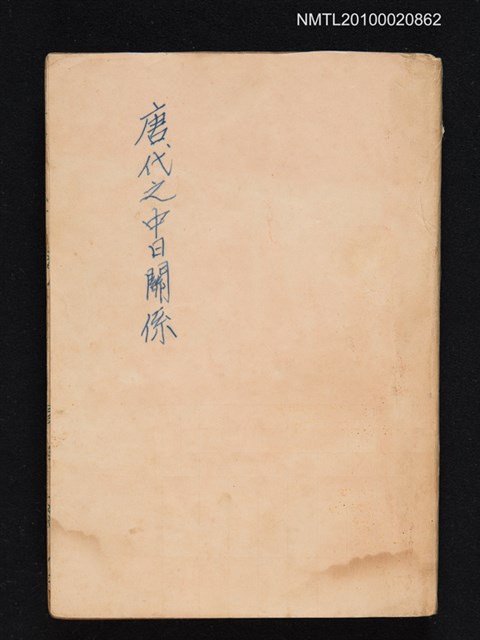 NMTL20100020862
唐代之中日關係